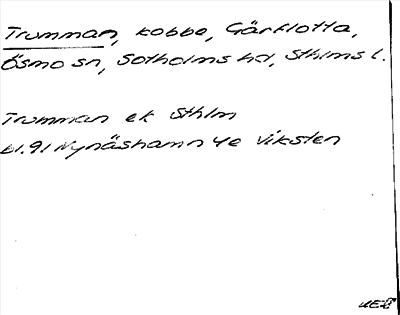 Trumman, kobbe, Gårflotta,
Ösmo sn, Sotholms hd, Sthlms l.
Trumman ek Sthlm
bl.91 Nynäshamn 4e Viksten